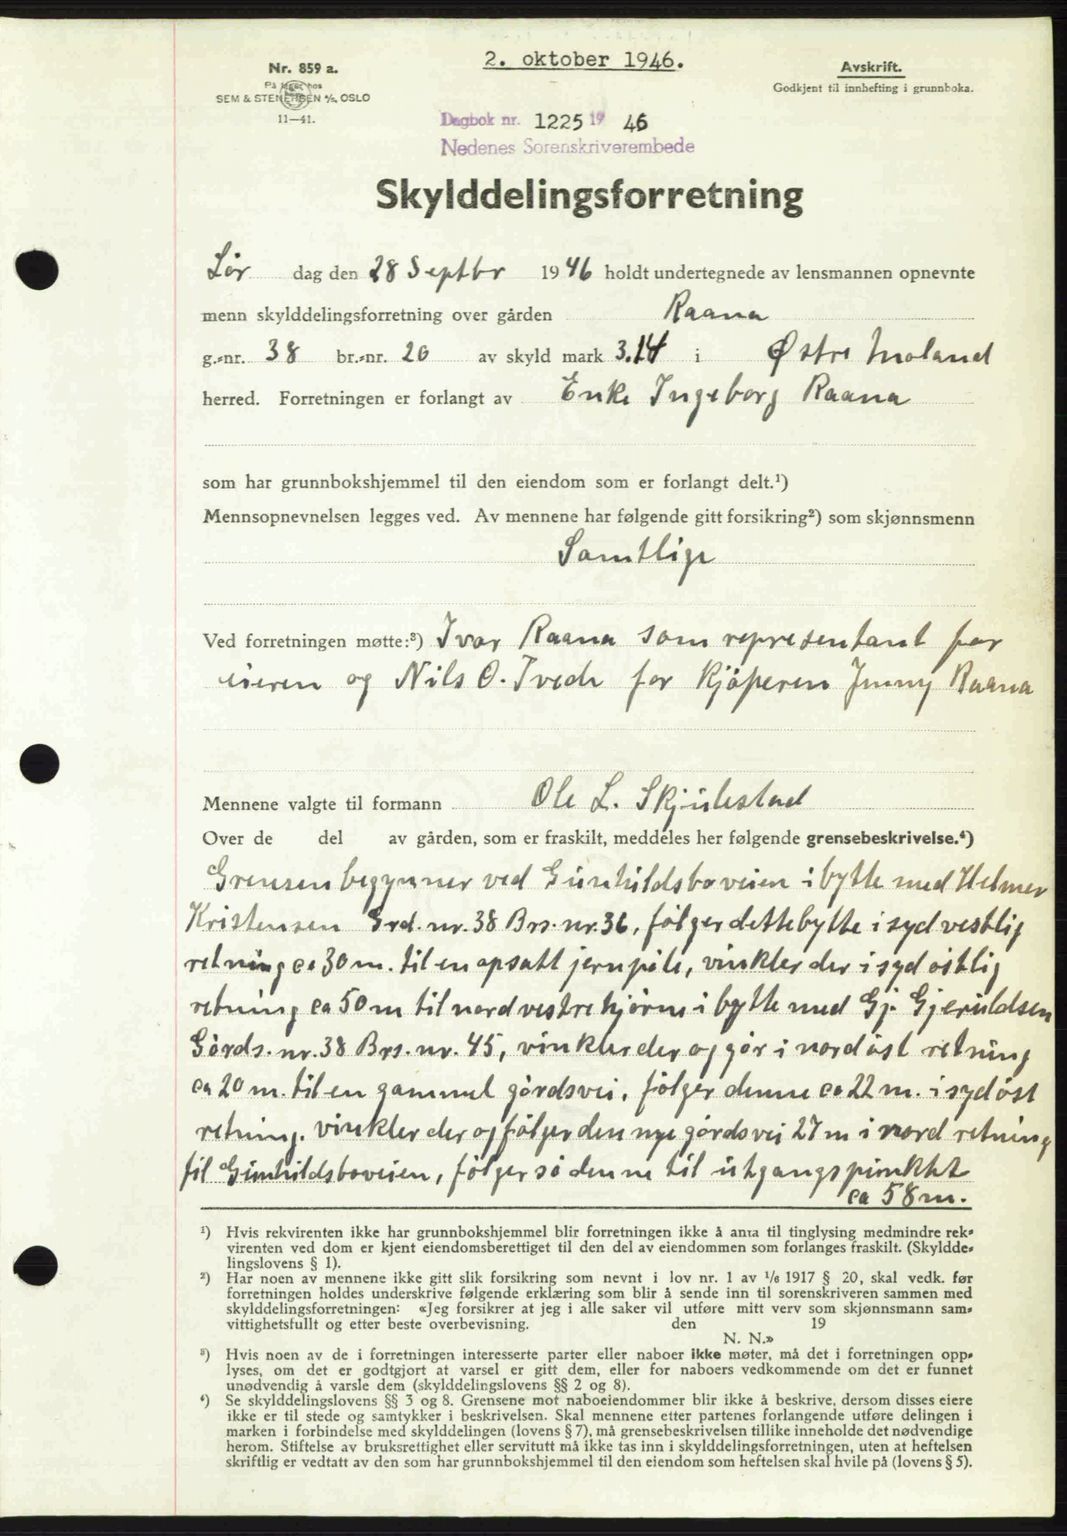 2. oktober 1946.
Nr. 859 a.
På lager hos
SEM & STENERSEN A/S, OSLO
11—41.
Avskrift.
Godkjent til innhefting i grunnboka.
Dagbok nr. 1225 19 46
Nedenes Sorenskriverembede
Skylddelingsforretning
Lør dag den 28 Septbr 1946 holdt undertegnede av lensmannen opnevnte
menn skylddelingsforretning over gården Raana
g.-nr. 38 br.-nr. 20 av skyld mark 3.14 i Østre Moland
herred. Forretningen er forlangt av Enke Ingeborg Raana
som har grunnbokshjemmel til den eiendom som er forlangt delt.¹)
Mennsopnevnelsen legges ved. Av mennene har følgende gitt forsikring²) som skjønnsmenn
Samtlige
Ved forretningen møtte:³) Ivar Raana som representant for
eieren og Nils O. Tvede for kjøperen Jenny Raana
Mennene valgte til formann Ole L. Skjulestad
Over de del av gården, som er fraskilt, meddeles her følgende grensebeskrivelse.⁴)
Grensen begynner ved Gunhildsboveien i bytte med Helmer
Kristensen Grd. nr. 38 Brs. nr. 36, følger dette bytte i sydvestlig
retning ca 30 m. til en opsatt jernpåle, vinkler der i syd østlig
retning ca 50 m til nordvestre hjørne i bytte med Gj. Gjeruldsen
Gårds. nr. 38 Brs. nr. 45, vinkler der og går i nordøst retning
ca 20 m. til en gammel gårdsvei, følger denne ca 22 m. i sydøst
retning. vinkler der og følger den nye gårdsvei 27 m i nord retning
til Gunhildsboveien, følger så denne til utgangspunktet
ca 58 m.
¹) Hvis rekvirenten ikke har grunnbokshjemmel blir forretningen ikke å anta til tinglysing medmindre rek-
virenten ved dom er kjent eiendomsberettiget til den del av eiendommen som forlanges fraskilt. (Skyldde-
lingslovens § 1).
²) Har noen av mennene ikke gitt slik forsikring som nevnt i lov nr. 1 av 1/6 1917 § 20, skal vedk. før
forretningen holdes underskrive følgende erklæring som blir å sende inn til sorenskriveren sammen med
skylddelingsforretningen: «Jeg forsikrer at jeg i alle saker vil utføre mitt verv som skjønnsmann sam-
vittighetsfullt og etter beste overbevisning. den 19
N. N.»
³) Hvis noen av de i forretningen interesserte parter eller naboer ikke møter, må det i forretningen opp-
lyses, om det er godtgjort at varsel er gitt dem, eller for naboers vedkommende om det er funnet
unødvendig å varsle dem (skylddelingslovens §§ 2 og 8).
⁴) Se skylddelingslovens §§ 3 og 8. Grensene mot naboeiendommer blir ikke å beskrive, dersom disses eiere
ikke er til stede og samtykker i beskrivelsen. Skal mennene etter partenes forlangende utføre delingen i
marken i forbindelse med skylddelingen (lovens § 7), må grensebeskrivelsen tillike inneholde det nødvendige
herom. Stiftelse av bruksrettighet eller servitutt må ikke tas inn i skylddelingsforretningen, uten at heftelsen
skriftlig er vedtatt av den som har grunnbokshjemmel til den eiendom som heftelsen skal hvile på (lovens § 5).